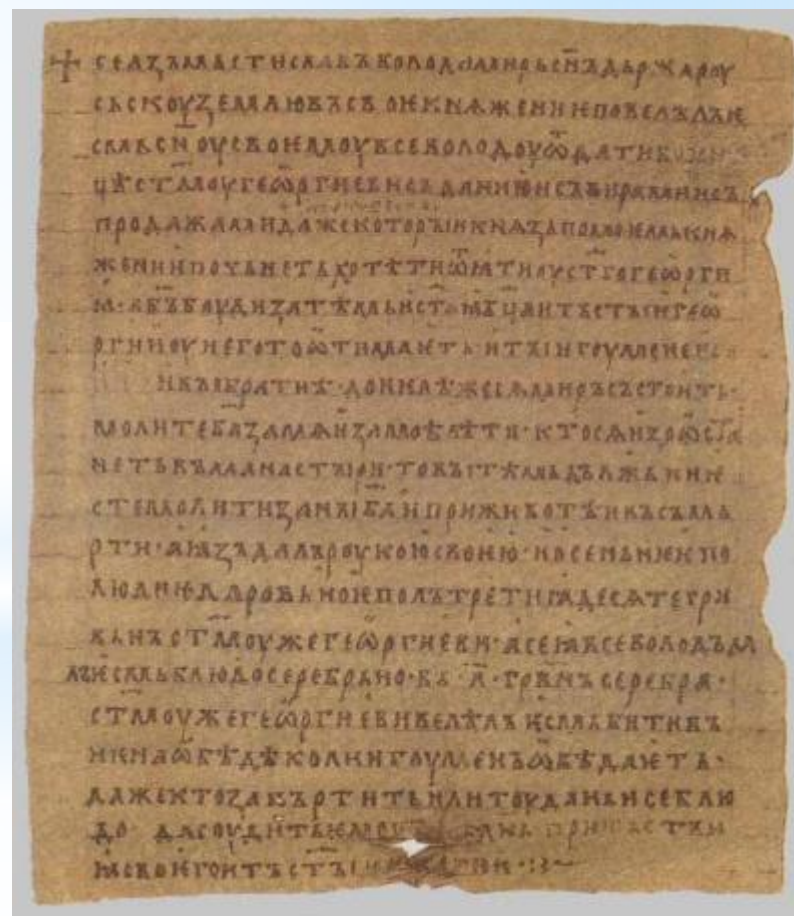 + се азъ мьстиславъ володимирь с͠нъ дьржа роу
сьскоу землю въ своѥ кнѧжениѥ повелѣлъ ѥ
смь с͠ноу своѥмоу всеволодоу ѿдати боуи
цѣ с͠тмоу геѡргиеви съ данию и съ вирами и съ
продажами даже которыи кнѧзь по моѥмь кнѧ
жении почьнеть хотѣти ѿѧти оу с͠тго геѡрги
ꙗ · а б͠ъ боуди за тѣмь и с͠таꙗ б͠ца и тъ с͠тыи геѡ
ргии оу него то ѿимаѥть и ты игоумене
и вы братиѣ · донелѣ же сѧ миръ състоить ·
молите б͠а за мѧ и за моѣ дѣти · кто сѧ изѡоста
неть въ манастыри · то вы тѣмь дължьни ѥ
сте молити за ны б͠а и при животѣ и въ съмь
рти · а ꙗзъ далъ роукою своѥю · и осеньнѥѥ по
людиѥ даровьноѥ полътретиꙗдесѧте гри
вьнъ с͠тмоу же геѡргиеви · а се ꙗ всеволодъ да
лъ ѥсмь блюдо серебрьно · въ · л͠ · гр͠внъ серебра ·
с͠тмоу же геѡргиеви велѣлъ ѥсмь бити въ
нѥ на ѡбѣдѣ коли игоуменъ ѡбѣдаѥть ·
даже кто запъртить или тоу дань и се блю
до · да соудить ѥмоу б͠ъ въ днь пришьстви
ꙗ своѥго и тъ с͠тыи геѡргии